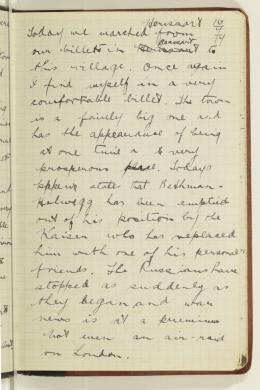 Toussart 16/7/17
Today we marched from
our billets in Beauvart to
this village. Once again
I find myself in a very
comfortable billet. The town
is a fairly big one and
has the appearance of being
at one time a very
prosperous place. Todays
papers state that Bethman-
Holwegg has been emptied
out of his position by the
Kaiser who has replaced
him with one of his personal
friends. The Russians have
stopped as suddenly as
they began and war
news is at a premium
not even an air-raid
on London.